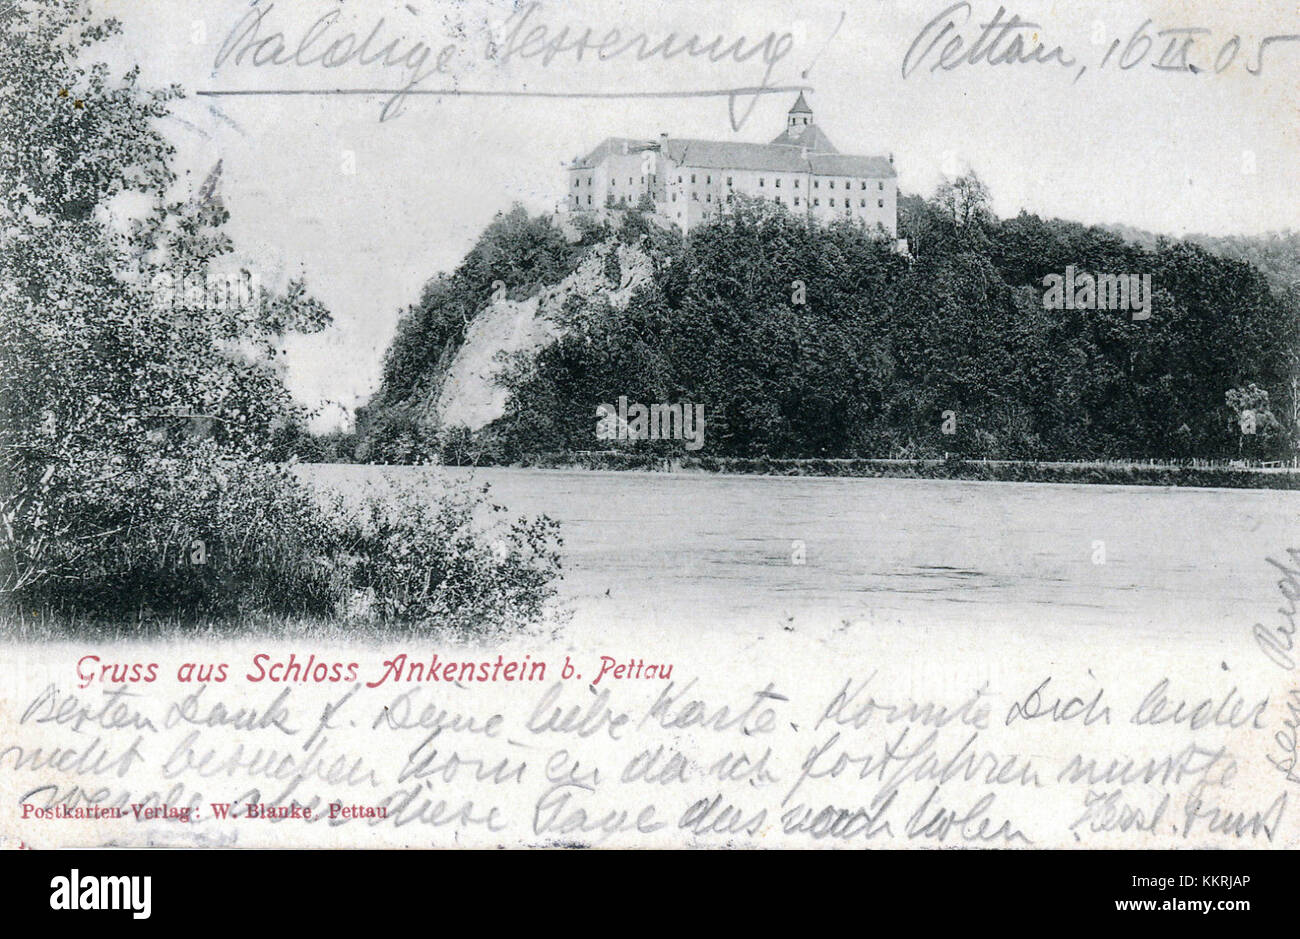 Baldige Besserung! Pettau, 16 IX. 05
Gruss aus Schloss Ankenstein b. Pettau
Besten Dank f. Deine liebe Karte. Konnte Dich leider
nicht besuchen da ich fortfahren musste
werde aber diese Tage das nachholen Herzl. Gruss
Postkarten-Verlag: W. Blanke, Pettau
Dein
alamy
Image ID: KKRJAP
www.alamy.com